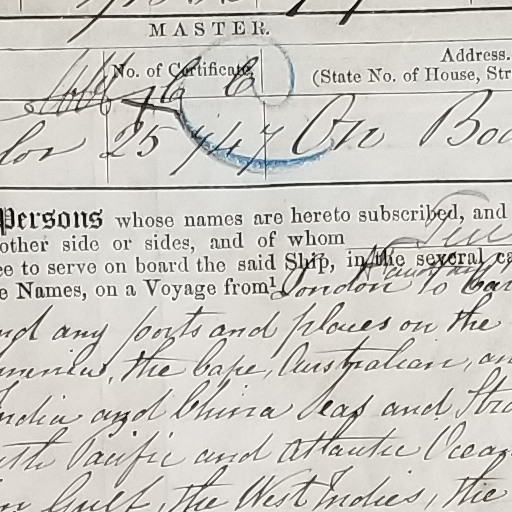 MASTER.
No. of Certificate
Address.
(State No. of House, Str
25 747 On Boa
Persons whose names are hereto subscribed, and
other side or sides, and of whom
ee to serve on board the said Ship, in the several ca
e Names, on a Voyage from¹ London to
nd any ports and places on the
the Cape, Australian, an
India and China Seas and Stra
th Pacific and Atlantic Ocean
n Gulf, the West Indies, the